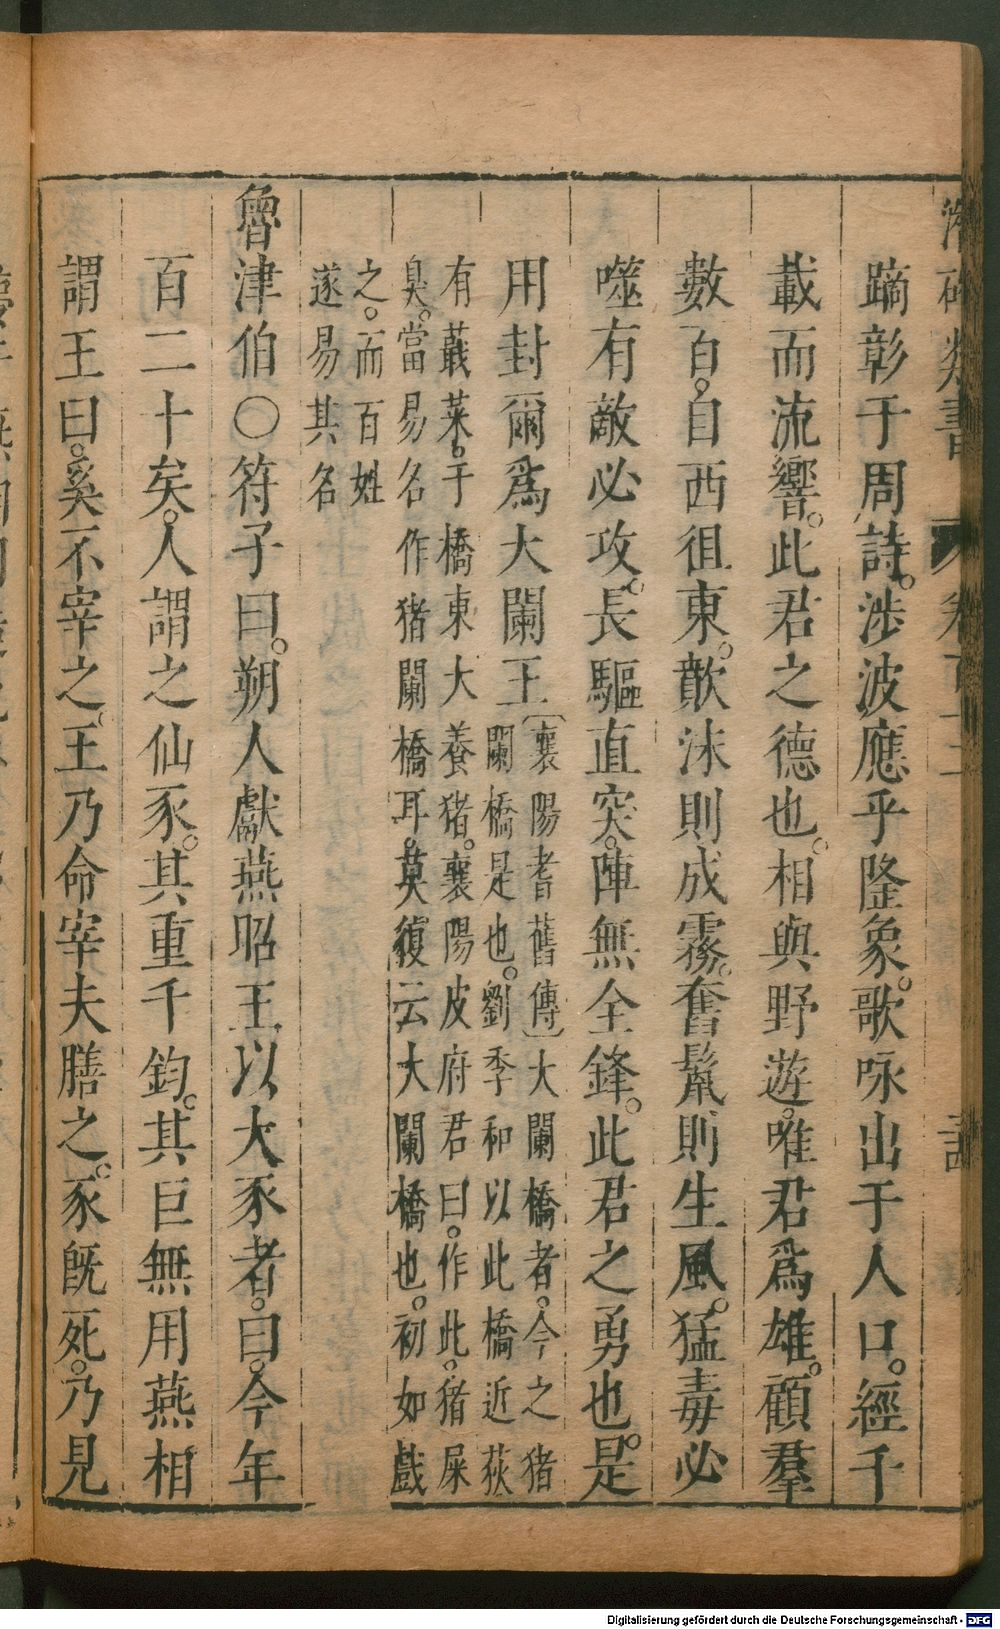 潛確類書 卷百十二 四
蹢彰于周詩。涉波應乎隆象。歌咏出于人口。經千
載而流響。此君之德也。相與野遊。唯君爲雄。顧羣
數百。自西徂東。歕沫則成霧。奮鬣則生風。猛毒必
噬有敵必攻。長驅直突。陣無全鋒。此君之勇也。是
用封爾爲大闌王〔襄陽耆舊傳〕大闌橋者。今之猪
闌橋是也。劉季和以此橋近荻
有蕺菜。于橋東大養猪。襄陽皮府君曰。作此。猪屎
臭。當易名作猪闌橋耳。莫復云大闌橋也。初如戲
之。而百姓
遂易其名
魯津伯〇符子曰。朔人獻燕昭王以大豕者。曰。今年
百二十矣。人謂之仙豕。其重千鈞。其巨無用燕相
謂王曰。奚不宰之。王乃命宰夫膳之。豕旣死。乃見
Digitalisierung gefördert durch die Deutsche Forschungsgemeinschaft - DFG